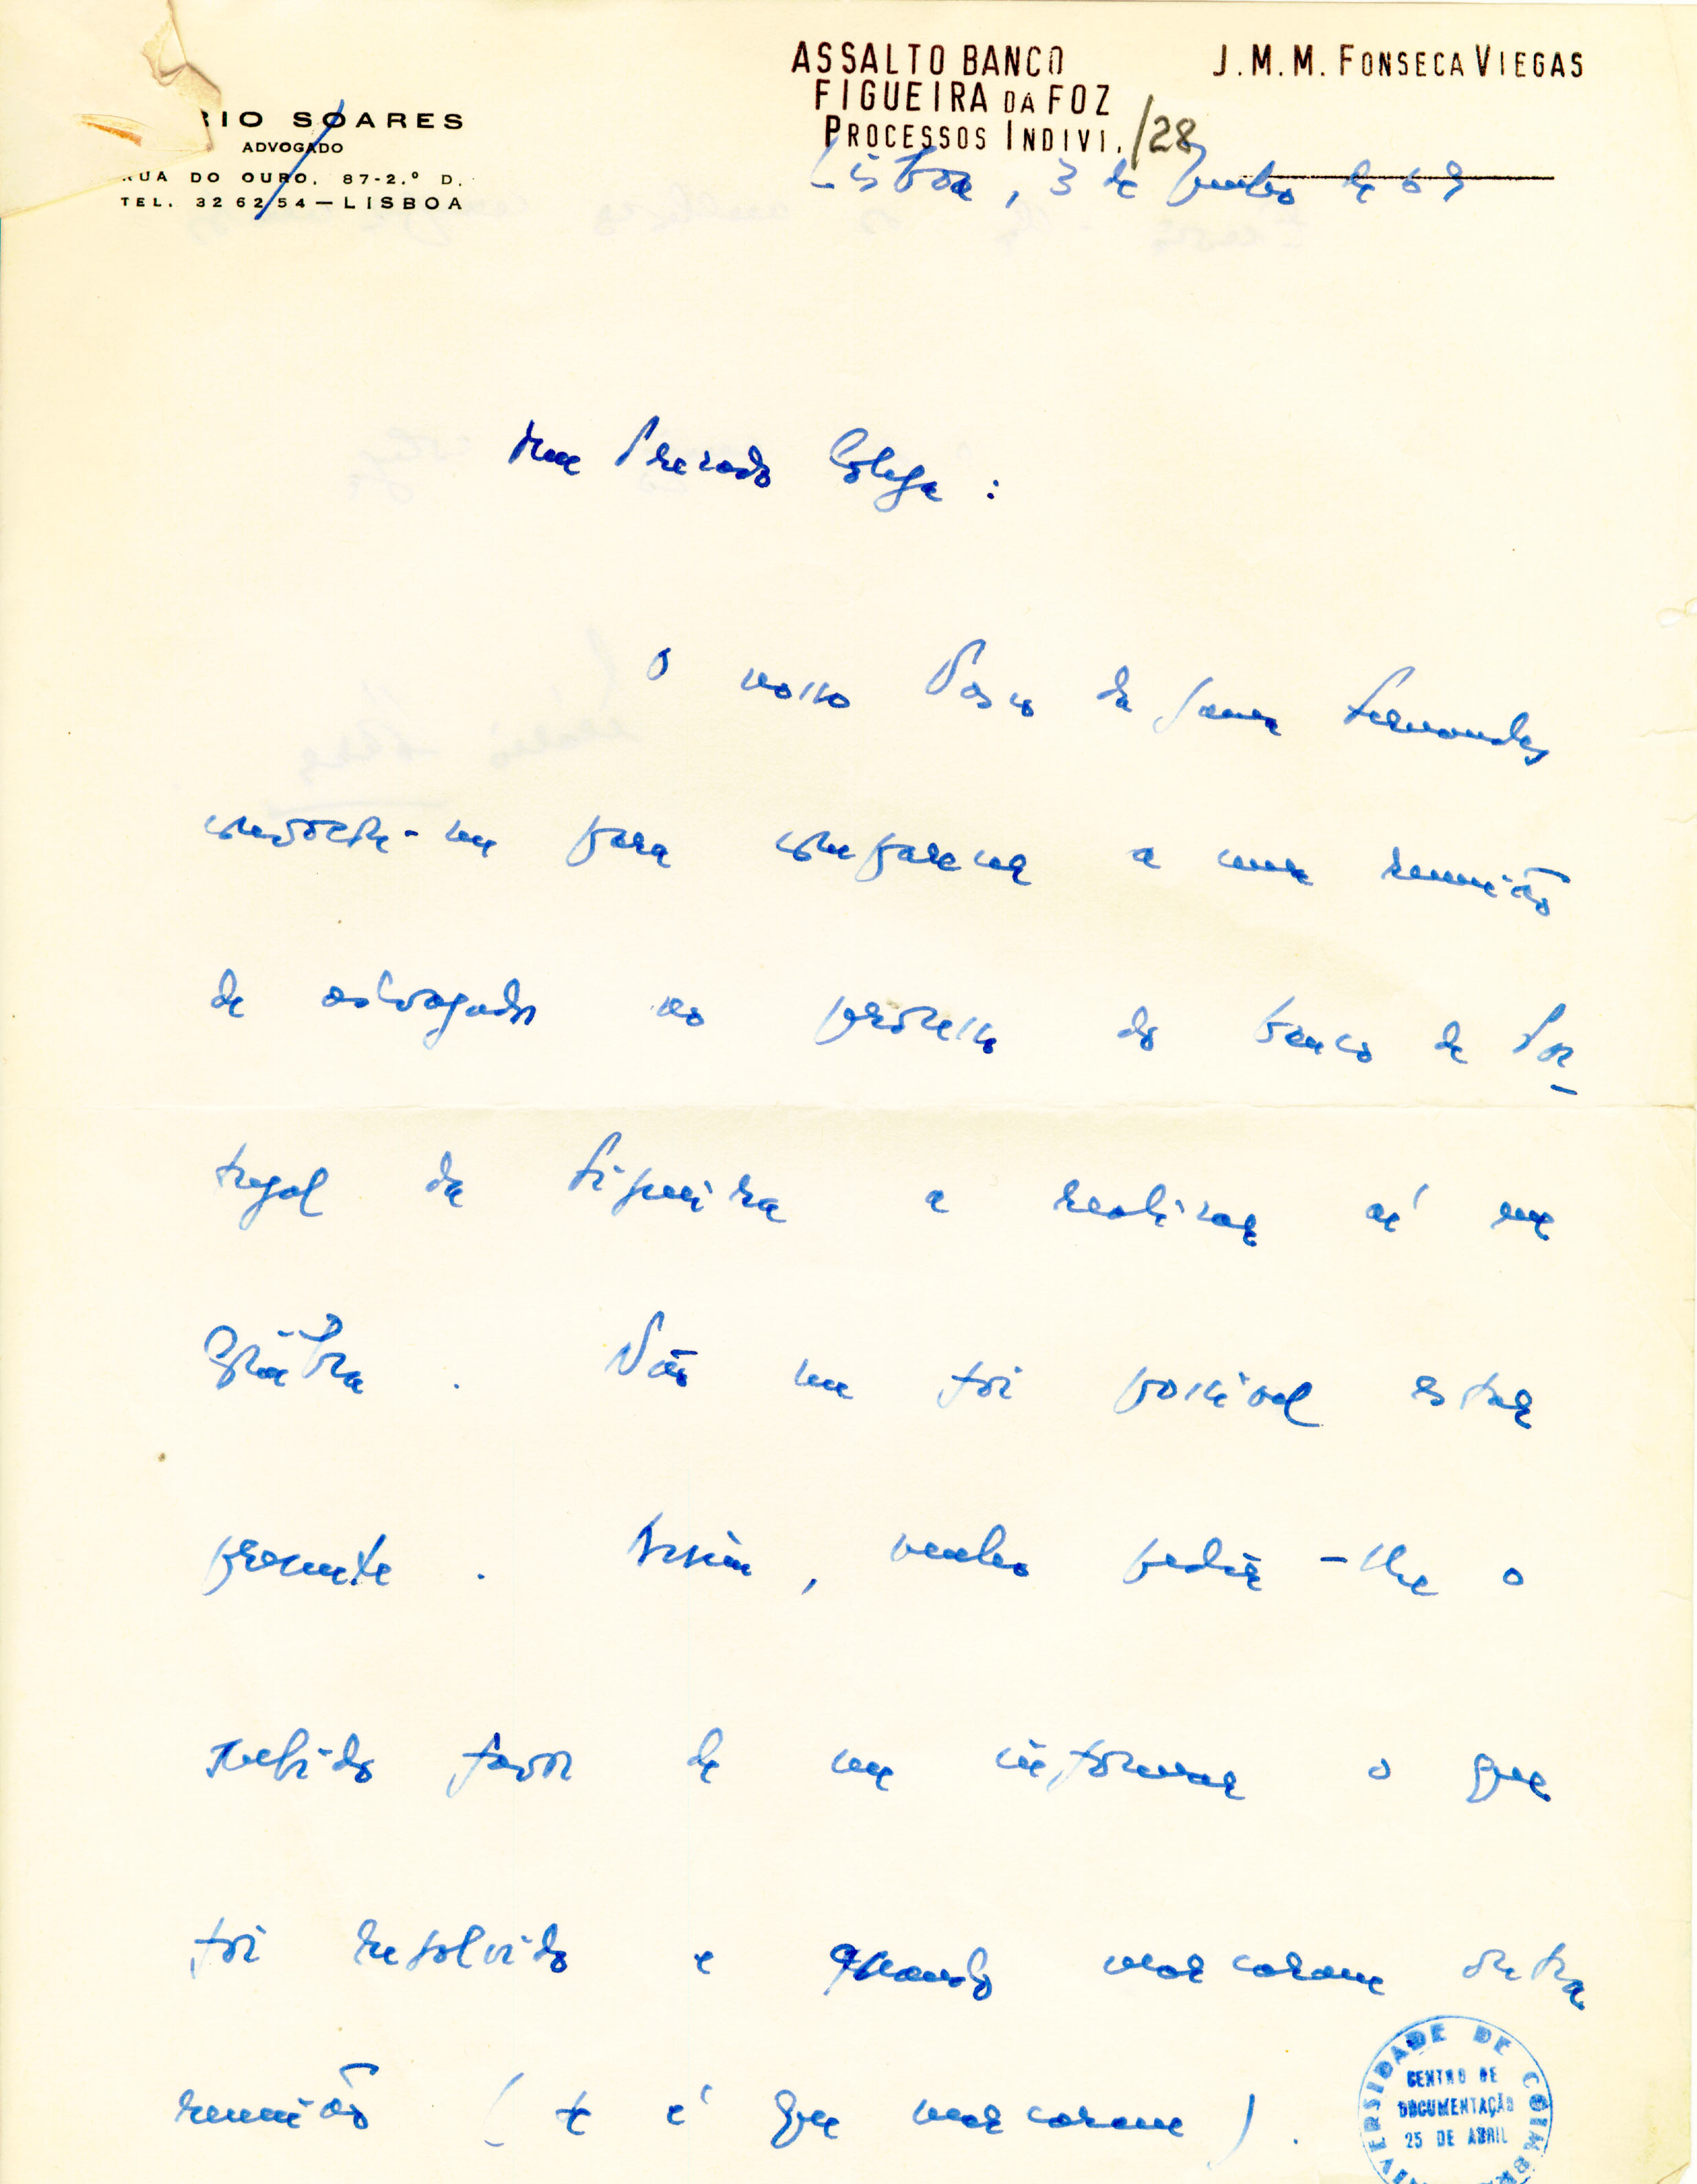 ASSALTO BANCO
FIGUEIRA DA FOZ
PROCESSOS INDIVI. /28
J.M.M. FONSECA VIEGAS
RIO SOARES
ADVOGADO
RUA DO OURO, 87-2.º D.
TEL. 32 62 54 — LISBOA
Lisboa, 3 de Junho de 69
Meu Prezado Colega :
O nosso Vasco da Gama Fernandes
convocou-me para comparecer a uma reunião
de advogados no processo do banco de Por-
tugal da Figueira a realizar aí em
Coimbra . Não me foi possível estar
presente . Assim , venho pedir-lhe o
subido favor de me informar o que
foi resolvido e quando marcaram outra
reunião ( se é que marcaram ) .
UNIVERSIDADE DE COIMBRA
CENTRO DE
DOCUMENTAÇÃO
25 DE ABRIL